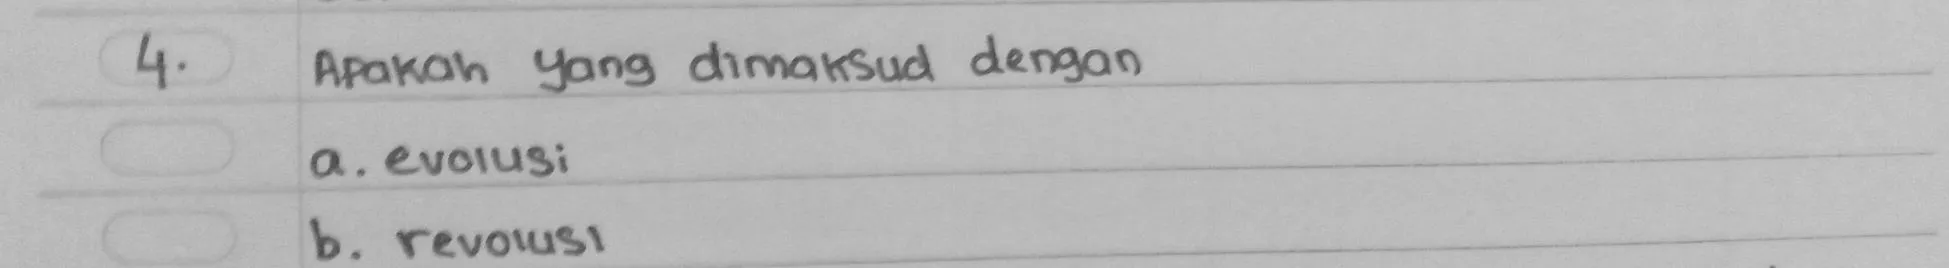 4. Apakah yang dimaksud dengan
a. evolusi
b. revolusi